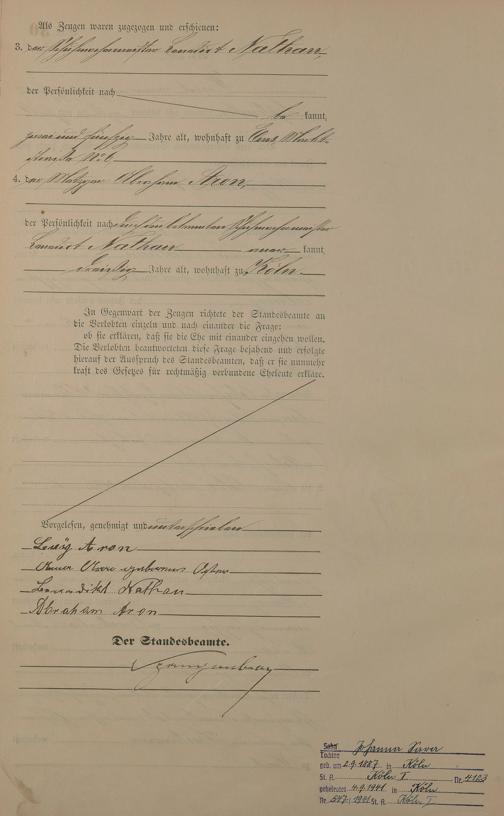 Als Zeugen waren zugezogen und erschienen:
3. der Schuhmachermeister Benedict Nathan,
der Persönlichkeit nach
be kannt,
zwei und fünfzig Jahre alt, wohnhaft zu Ems, Markt-
straße No 6
4. der Metzger Abraham Aron,
der Persönlichkeit nach durch den bekannten Schuhmachermeister
Benedict Nathan aner kannt,
dreißig Jahre alt, wohnhaft zu Köln
In Gegenwart der Zeugen richtete der Standesbeamte an
die Verlobten einzeln und nach einander die Frage:
ob sie erklären, daß sie die Ehe mit einander eingehen wollen.
Die Verlobten beantworteten diese Frage bejahend und erfolgte
hierauf der Ausspruch des Standesbeamten, daß er sie nunmehr
kraft des Gesetzes für rechtmäßig verbundene Eheleute erkläre.
Vorgelesen, genehmigt und unterschrieben
Aron
Aron geborene
Benedikt Nathan
Abraham Aron
Der Standesbeamte.
Sohn Johanna
Tochter
geb. am 2.9.1887 in Köln
St. A. Köln I Nr. 4123
geheiratet 4.9.1941 in Köln
Nr. 547/1941 St. A. Köln I